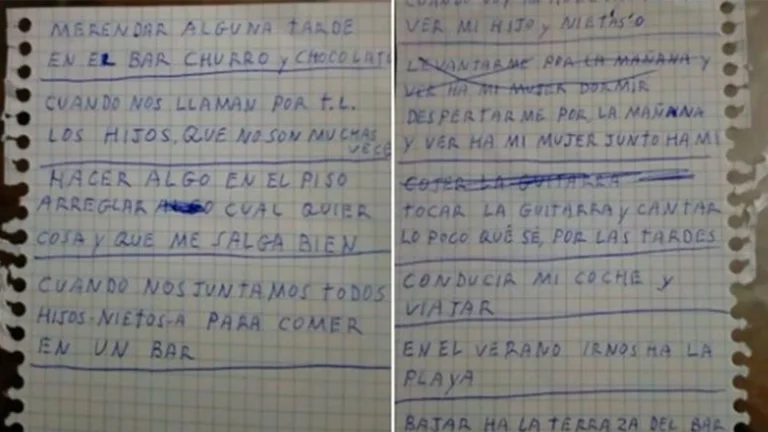 MERENDAR ALGUNA TARDE
EN EL BAR CHURRO y CHOCOLATE
CUANDO NOS LLAMAN POR T.L.
LOS HIJOS, QUE NO SON MUCHAS
VECE
HACER ALGO EN EL PISO
ARREGLAR ALGO CUAL QUIER
COSA y QUE ME SALGA BIEN
CUANDO NOS JUNTAMOS TODOS
HIJOS-NIETOS-A PARA COMER
EN UN BAR
VER MI HIJO y NIETAS'O
LEVANTARME POR LA MAÑANA y
VER HA MI MUJER DORMIR
DESPERTARME POR LA MAÑANA
Y VER HA MI MUJER JUNTO HA MI
COJER LA GUITARRA
TOCAR LA GUITARRA y CANTAR
LO POCO QUÉ SÉ, POR LAS TARDES
CONDUCIR MI COCHE y
VIAJAR
EN EL VERANO IRNOS HA LA
PLAYA
BAJAR HA LA TERRAZA DEL BAR